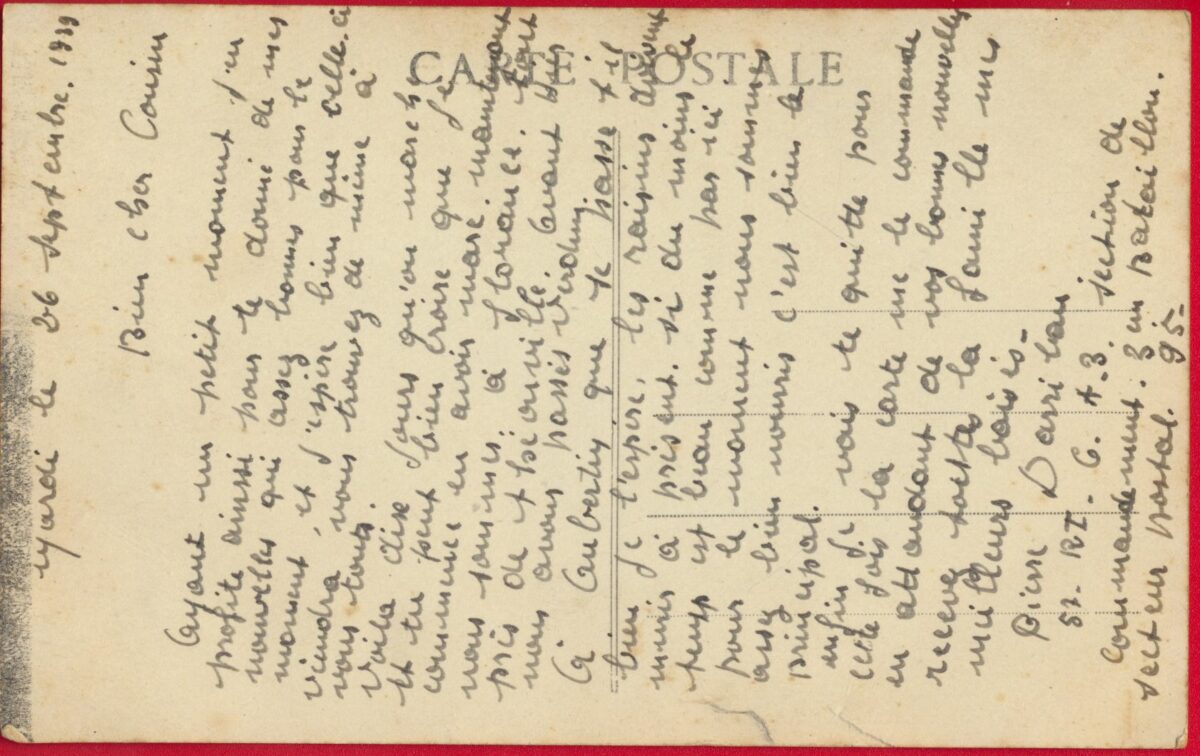 CARTE POSTALE
Mardi le 26 septembre. 1939
Bien cher Cousin
Ayant un petit moment j'en
profite ainssi pour te donné de mes
nouvelles qui assez bonnes pour le
moment, et j'espère bien que celle-ci
viendra vous trouvez de même à
vous tous.
Voila dix jours qu'on marche
et tu peut bien croire que je
commence en avoir mare. maintenant
nous sommes. à
près de Thiéauville. tout
nous avons passés Verdun. avant
à Aubertin que se passe t-il
bien je l'espère, les raisins doivent
muris à présent. si du moins le
temp est beau comme par ici
pour le moment nous sommes
assez bien nourris c'est bien le
principal.
enfin je vais te quitte pour
cette fois la carte me le commande
en attendant de vos bonnes nouvelles
recevez toutes la famille mes
meilleurs baisés-
Pierre Darribau
57- RI- C. A-3. section de
commandement. 3 em Bataillon.
secteur postal. 95-